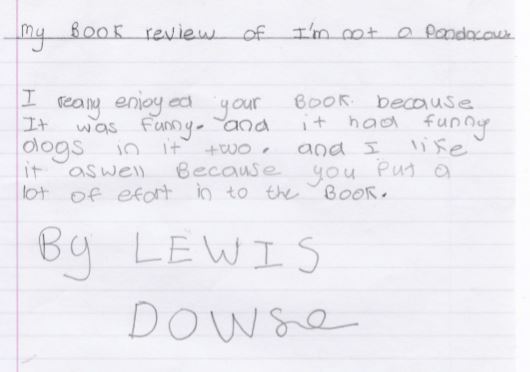 My BOOK review of I'm not a Pandacow
I reany enjoyed your BOOK. because
It was funny. and it had funny
dogs in it two. and I like
it aswell Because you Put a
lot of efort in to the BOOK.
By LEWIS
DOWSe